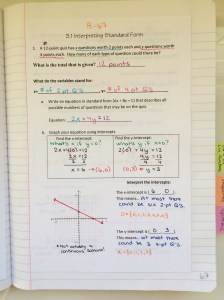 A-67
3.1 Interpreting Standard Form
1. A 12 point quiz has x questions worth 2 points each and y questions worth
4 points each. How many of each type of question could there be?
What is the total that is given? 12 points
What do the variables stand for?
x= # of 2 pt Q's. y= # of 4 pt Q's.
a. Write an equation in standard form (Ax + By = C) that describes all
possible numbers of questions that may be on the quiz.
Equation: 2x + 4y = 12
b. Graph your equation using intercepts.
Find the x-intercept: Find the y-intercept:
What's x if y=0? What's y if x=0?
2x + 4(0) = 12 2(0) + 4y = 12
2x = 12 4y = 12
2 2 4 4
x = 6 → (6,0) (0,3) ← y = 3
Interpret the intercepts:
The x-intercept is ( 6 , 0 )
This means... At most there
could be six 2-pt Q's.
The y-intercept is ( 0 , 3 )
This means... at most there
could be 3 4-pt Q's.
*Not actually a
continuous solution!
67